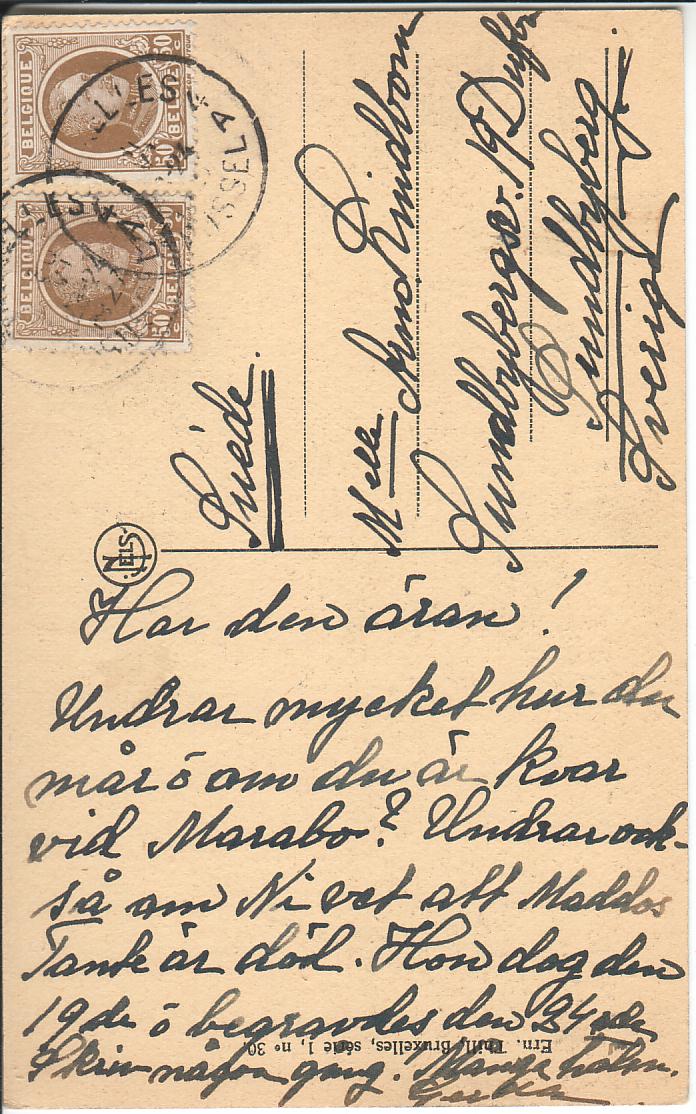 BELGIQUE
50 c
BELGIË
BELGIQUE
50 c
BELGIË
Suède.
Melle Lindbom
Sundbybergsv. 19
Sundbyberg
Sverige
NELS
Har den äran!
Undrar mycket hur du
mår o om du är kvar
vid Marabo? Undrar ock-
så om Ni vet att Maddos
Tante är död. Hon dog den
19de o begravdes den 24de
Skriv någon gång. Många hälsn.
Ern. Thill, Bruxelles, série 1, nº 30.